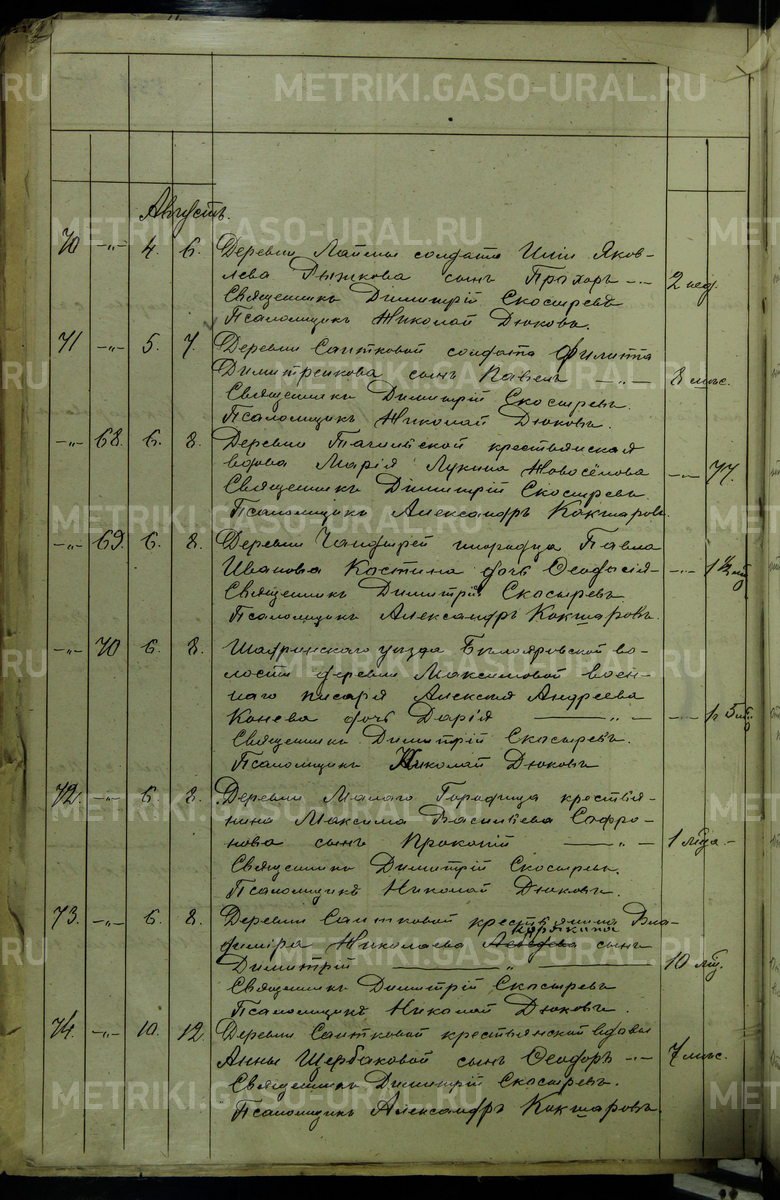 METRIKI.GASO-URAL.RU
Августъ.
70 -"- 4. 6. Деревни Лаймы солдата Иліи Яков-
лева Рыжкова сынъ Прохоръ -"- 2 нед.
Священникъ Димитрій Скосыревъ
Псаломщикъ Николай Дюковъ.
71 -"- 5. 7. Деревни Саитковой солдата Филиппа
сынъ Павелъ -"- 8 мѣс.
Священникъ Димитрій Скосыревъ.
Псаломщикъ Николай Дюковъ.
-"- 68. 6. 8. Деревни крестьянская
вдова Марія Лукина Новосёлова -"- 77.
Священникъ Димитрій Скосыревъ.
Псаломщикъ Александръ Кокшаровъ.
-"- 69. 6. 8. Деревни инородца Павла
Иванова Костина дочь Ѳеодосія -"- 1
Священникъ Димитрій Скосыревъ.
Псаломщикъ Александръ Кокшаровъ.
-"- 70 6. 8. Шадринскаго уѣзда Бѣлоярской во-
лости деревни Максимовой воен-
наго писаря Алексѣя Андреева
Конева дочь Дарія -"-
Священникъ Димитрій Скосыревъ.
Псаломщикъ Николай Дюковъ
72. -"- 6 8. Деревни Малаго Городища крестья-
нина Максима Васильева Софро-
нова сынъ Прокопій -"- 1 года -
Священникъ Димитрій Скосыревъ.
Псаломщикъ Николай Дюковъ.
73. -"- 6 8. Деревни Саитковой крестьянина Вла-
Карякина
диміра Николаева сынъ
Димитрій -"- 10
Священникъ Димитрій Скосыревъ
Псаломщикъ Николай Дюковъ.
74. -"- 10. 12. Деревни Саитковой крестьянской вдовы
Анны Щербаковой сынъ Ѳеодоръ -"- 7 мѣс.
Священникъ Димитрій Скосыревъ.
Псаломщикъ Александръ Кокшаровъ.